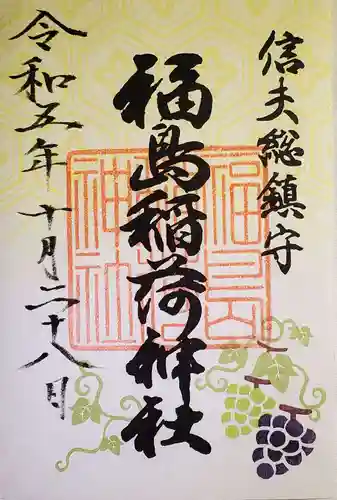 信夫総鎮守
福島稲荷神社
令和五年十月二十八日
福島稲荷神社